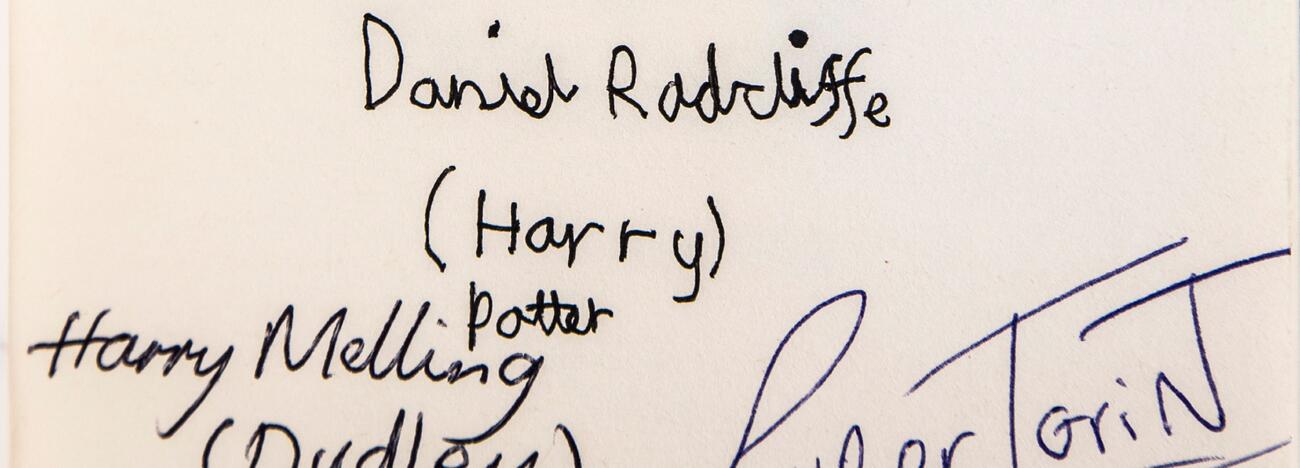 Daniel Radcliffe
(Harry)
Potter
Harry Melling
(Dudley)